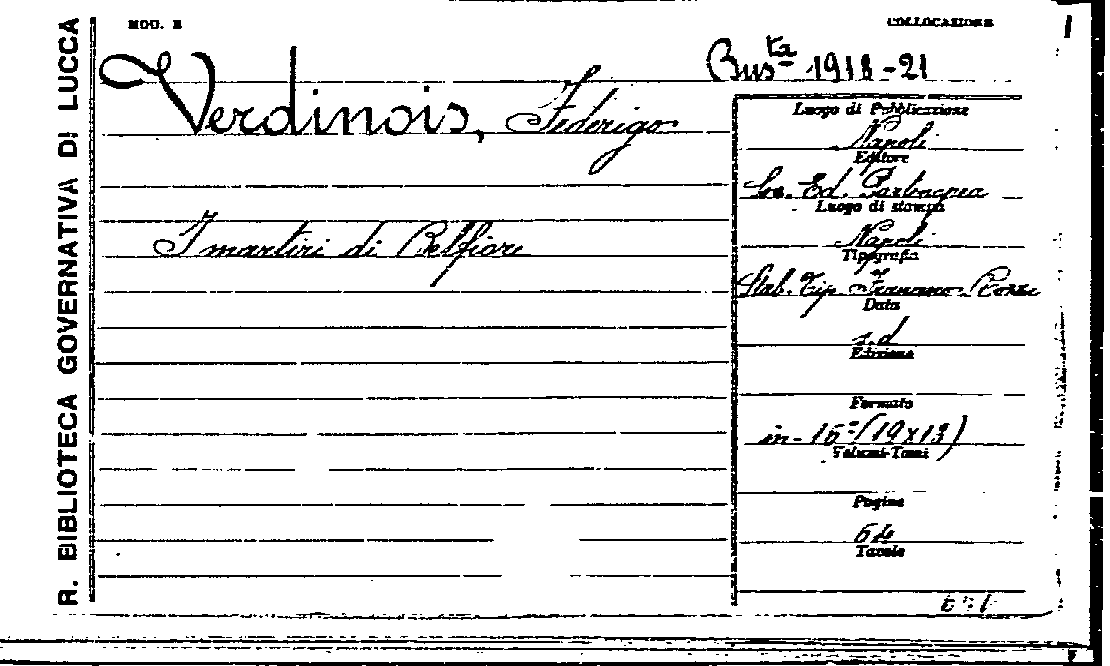 R. BIBLIOTECA GOVERNATIVA DI LUCCA
MOD. E
COLLOCAZIONE
Bus.ta 1918-21
Verdinois, Federigo
I martiri di Belfiore
Luogo di Pubblicazione
Napoli
Editore
Soc. Ed. Partenopea
Luogo di stampa
Napoli
Tipografia
Stab. Tip.
Data
s.d
Edizione
Formato
in-16º (19x13)
Volumi-Tomi
Pagine
64
Tavole